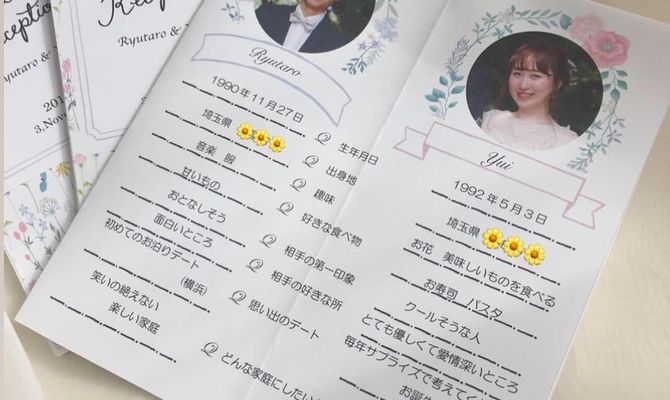 Reception
Ryutaro &
201
3.Nove
Ryutaro
1990年11月27日
埼玉県
音楽 服
甘いもの
おとなしそう
面白いところ
初めてのお泊りデート
(横浜)
笑いの絶えない
楽しい家庭
Q 生年月日
Q 出身地
Q 趣味
Q 好きな食べ物
Q 相手の第一印象
Q 相手の好きな所
Q 思い出のデート
Q どんな家庭にしたい
Yui
1992年5月3日
埼玉県
お花 美味しいものを食べる
お寿司 パスタ
クールそうな人
とても優しくて愛情深いところ
毎年サプライズで考えてく
お誕生